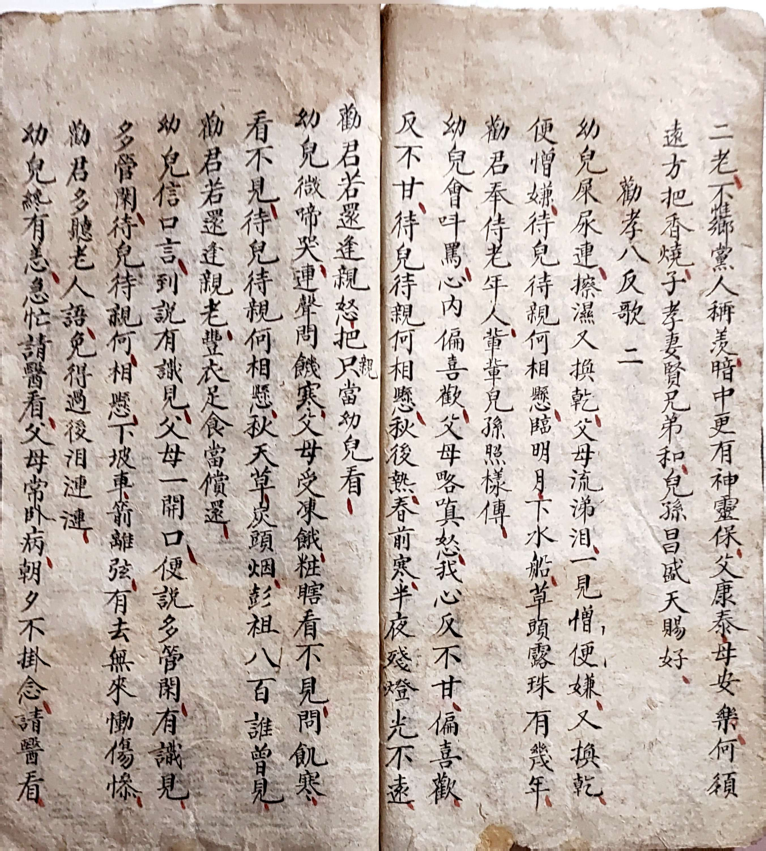 二老不鄉黨人稱羨暗中更有神靈保父康泰母安樂何須
遠方把香燒子孝妻賢兄弟和兒孫昌盛天賜好
勸孝八反歌 二
幼兒屎尿連擦濕又換乾父母流涕泪一見憎便嫌又換乾
便憎嫌待兒待親何相懸臨明月下水船草頭露珠有幾年
勸君奉侍老年人輩輩兒孫照樣傳
幼兒會呌罵心內偏喜歡父母略嗔怒我心反不甘偏喜歡
反不甘待兒待親何相懸秋後熱春前寒半夜殘燈光不遠
勸君若還逢親怒把只親當幼兒看
幼兒微啼哭連聲問饑寒父母受凍餓粧瞎看不見問飢寒
看不見待兒待親何相懸秋天草炭頭烟彭祖八百誰曾見
勸君若還逢親老豐衣足食當償還
幼兒信口言到說有識見父母一開口便說多管閑有識見
多管閑待兒待親何相懸下坡車箭離弦有去無來慟傷慘
勸君多聽老人語免得過後泪漣漣
幼兒終有恙急忙請醫看父母常卧病朝夕不掛念請醫看